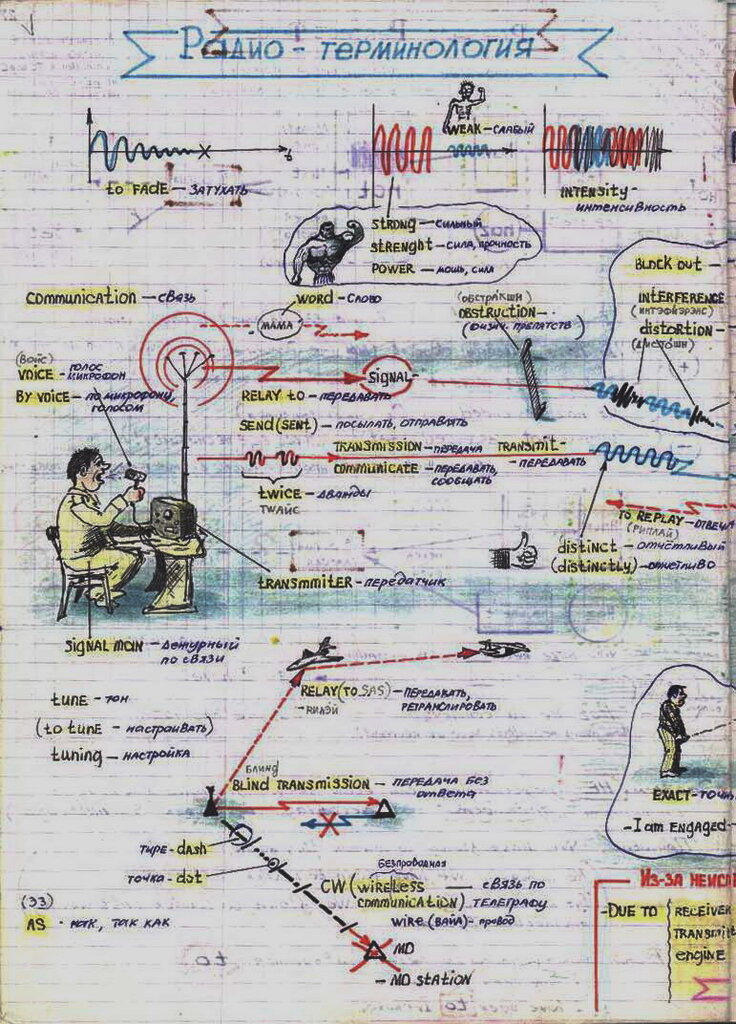 Радио-терминология
WEAK-слабый
to FADE — ЗАТУХАТЬ
INTENSITY-
интенсивность
STRONG — сильный
STRENGHT — сила, прочность
POWER — мощь, сила
BLOCK out —
INTERFERENCE
(интэфиэрэнс)
distortion-
(дистошн)
communication — связь
WORD - слово
МАМА
(обстракшн)
OBSTRUCTION —
(физич. препатств)
(войс)
VOICE - голос
микрофон
BY VOICE - по микрофону,
голосом
SIGNAL
RELAY to - передавать
SEND (SENT) — посылать, отправлять
TRANSMISSION - передача
TRANSMIT-
-передавать
COMMUNICATE - передавать,
сообщать
twice - дважды
ТWАЙС
TO REPLAY - отвеча
(риплай)
distinct — отчётливый
(distinctly) - отчётливо
TRANSMMITER - передатчик
SIGNAL MAN — дежурный
по связи
RELAY (TO SAS) — передавать,
ретранслировать
-РИЛЭЙ
tune - тон
(to tune - настраивать)
tuning — настройка
БЛИНД
BLIND TRANSMISSION — передача без
ответа
EXACT - точн
- I am ENGAGED
тире - dash
точка - dot
безпроводная
CW (WIRELESS — связь по
communication) телеграфу
WIRE (ВАЙА) - провод
(ЭЗ)
AS - как, так как
MD
— MD STATION
Из-за неисп
-DUE TO
RECEIVER
TRANSMIT
engine